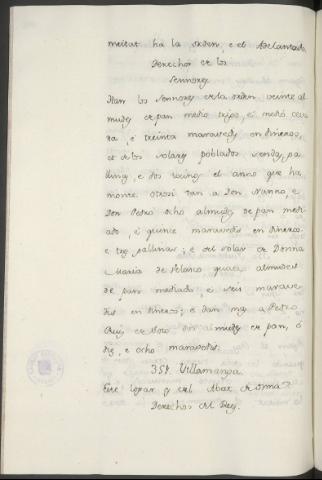 meitat ha la orden, e el Adelantado
Derechos de los
Sennores
Dan los sennores de la orden veinte al
mudes de pan medio trigo, e medio ceva
ra, e treinta maravedis en dineros,
et de los solares poblados sendas ga
llinas, e dos tocinos el anno que ha
monte otrosi dan a Don Nunno, e
Don Pedro ocho almudes de pan medi
ado, e quince maravedis en dineros
e tres gallinas; e del solar de Donna
Maria de Velasco quatro almudes
de pan mediado, e seis marave
dis en dineros; e dan mas a Pedro
Ruiz de almudes de pan, o
diez, e ocho maravedis.
351. Villamanza
Este logar es del Abat de Onna
Derechos del Rey.